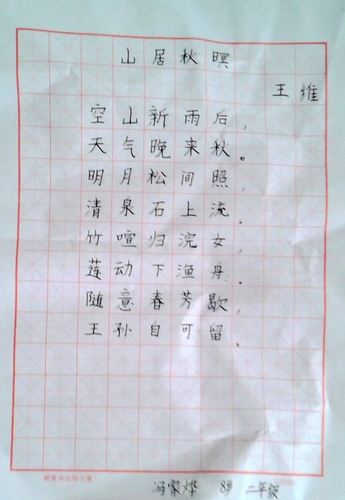 山居秋暝
王维
空山新雨后，
天气晚来秋。
明月松间照，
清泉石上流。
竹喧归浣女，
莲动下渔舟。
随意春芳歇，
王孙自可留。
冯家烨 8岁 二年级